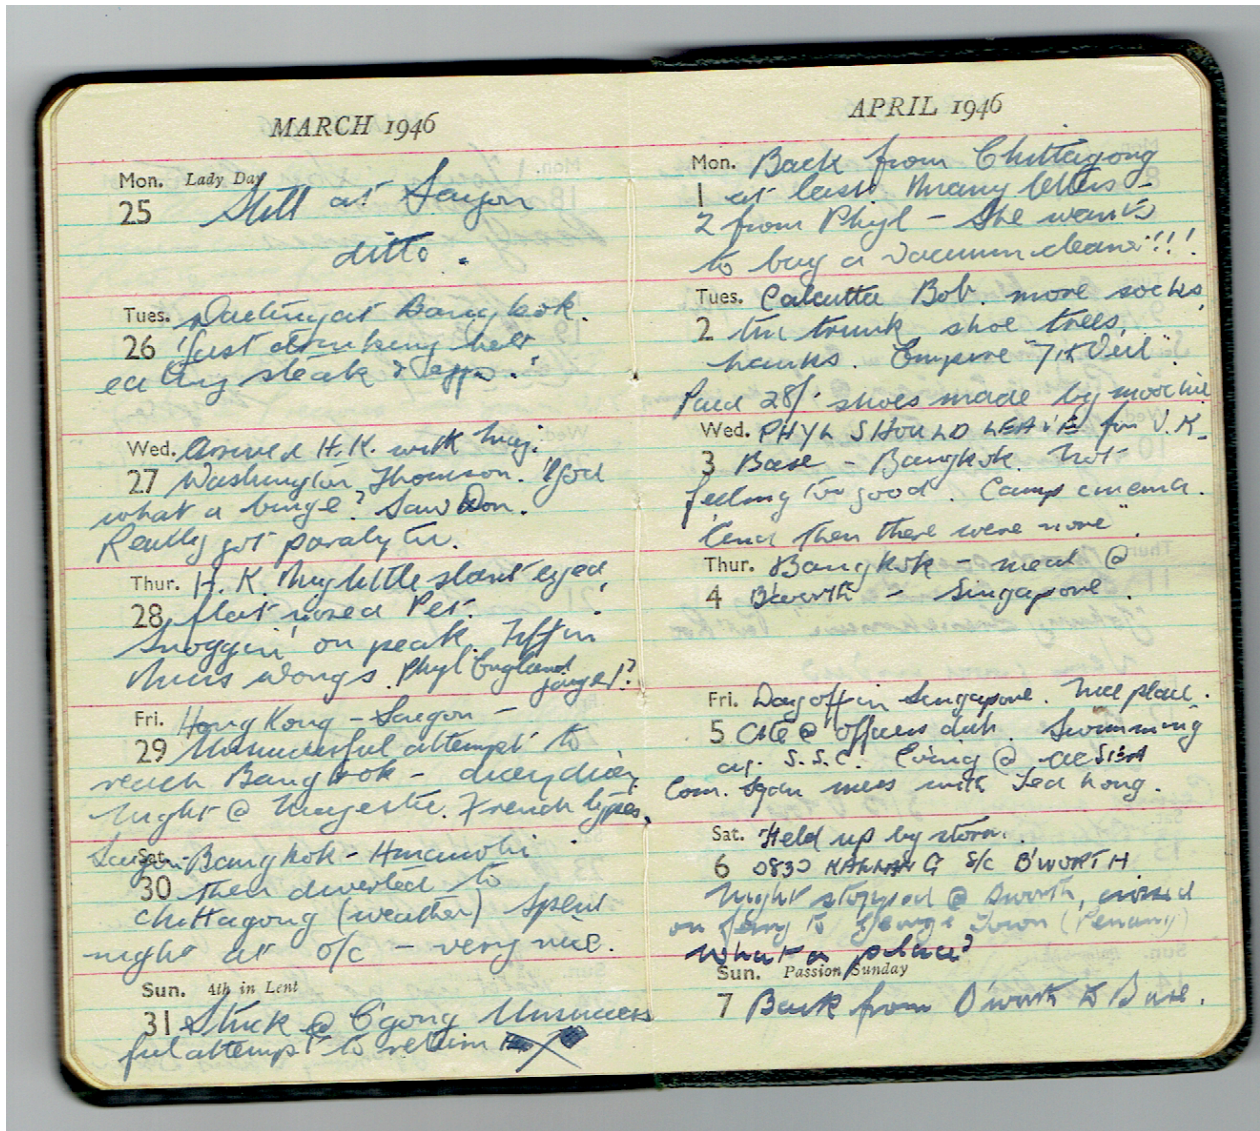 MARCH 1946
Mon. Lady Day
25 Still at Saigon
ditto.
Tues. at Bangkok.
26 Just drinking beer
eating steak &
Wed. Arrived H.K. with Maj.
27 Washington Thomson. God
what a binge? Saw Don.
Really got paralytic.
Thur. H.K. My little slant eyed
28 flat nosed Pet.
Snoggin' on peak. Tiffin
Miss Wongs. Phyl England
Fri. Hong Kong - Saigon -
29 Unsuccessful attempt to
reach Bangkok - dicey dicey,
Night @ Majestic. French types.
Sat. Saigon-Bangkok-Hmawbi
30 then diverted to
Chittagong (weather) Spent
night at o/c - very nice.
Sun. 4th in Lent
31 Stuck @ C'gong Unsuccess
ful attempt to return
APRIL 1946
Mon. Back from Chittagong
1 at last. Many letters -
2 from Phyl - She wants
to buy a vacuum cleaner!!!
Tues. Calcutta Bob. more socks,
2 tin trunk shoe trees,
hanks. Empire "7th Veil"
Paid 28/- shoes made by moochie
Wed. PHYL SHOULD LEAVE for U.K.
3 Base - Bangkok. Not
feeling too good. Camp cinema.
"And then there were none"
Thur. Bangkok - meal @
4 B'worth - Singapore.
Fri. Day off in Singapore. Nice place.
5 Ate @ officers club. Swimming
S.S.C. Ev'ing @
Com. Sgdn mess with Ted Long.
Sat. Held up by storm.
6 0830 S/C B'WORTH
Night stopped @ B'worth, crossed
on ferry to George Town (Penang)
What a place?
Sun. Passion Sunday
7 Back from B'worth to Base.